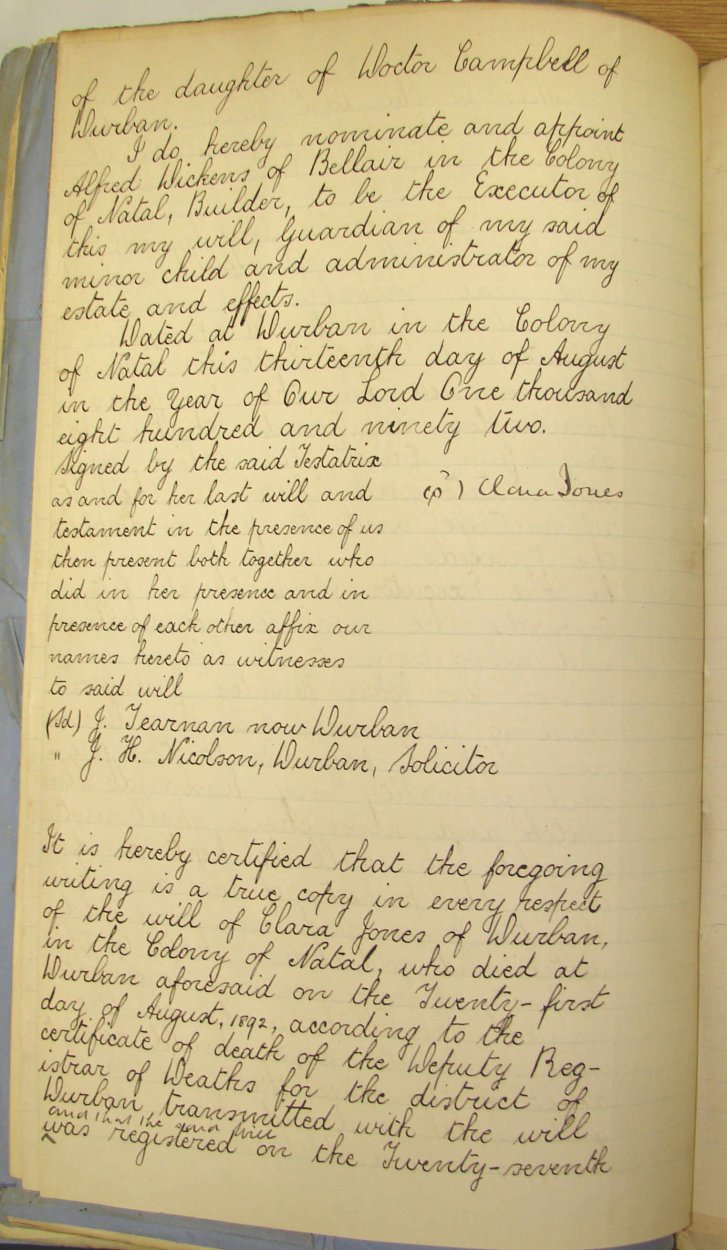 of the daughter of Doctor Campbell of
Durban.
I do hereby nominate and appoint
Alfred Wickens of Bellair in the Colony
of Natal, Builder, to be the Executor of
this my will, Guardian of my said
minor child and administrator of my
estate and effects.
Dated at Durban in the Colony
of Natal this thirteenth day of August
in the Year of Our Lord One thousand
eight hundred and ninety two.
Signed by the said Testatrix
as and for her last will and
testament in the presence of us
then present both together who
did in her presence and in
presence of each other affix our
names hereto as witnesses
to said will
Clara Jones
(Sd) J. Tearnan now Durban
" J. H. Nicolson, Durban, Solicitor
It is hereby certified that the foregoing
writing is a true copy in every respect
of the will of Clara Jones of Durban,
in the Colony of Natal, who died at
Durban aforesaid on the Twenty-first
day of August, 1892, according to the
certificate of death of the Deputy Reg-
istrar of Deaths for the district of
Durban, transmitted with the will
and that the said will
was registered on the Twenty-seventh